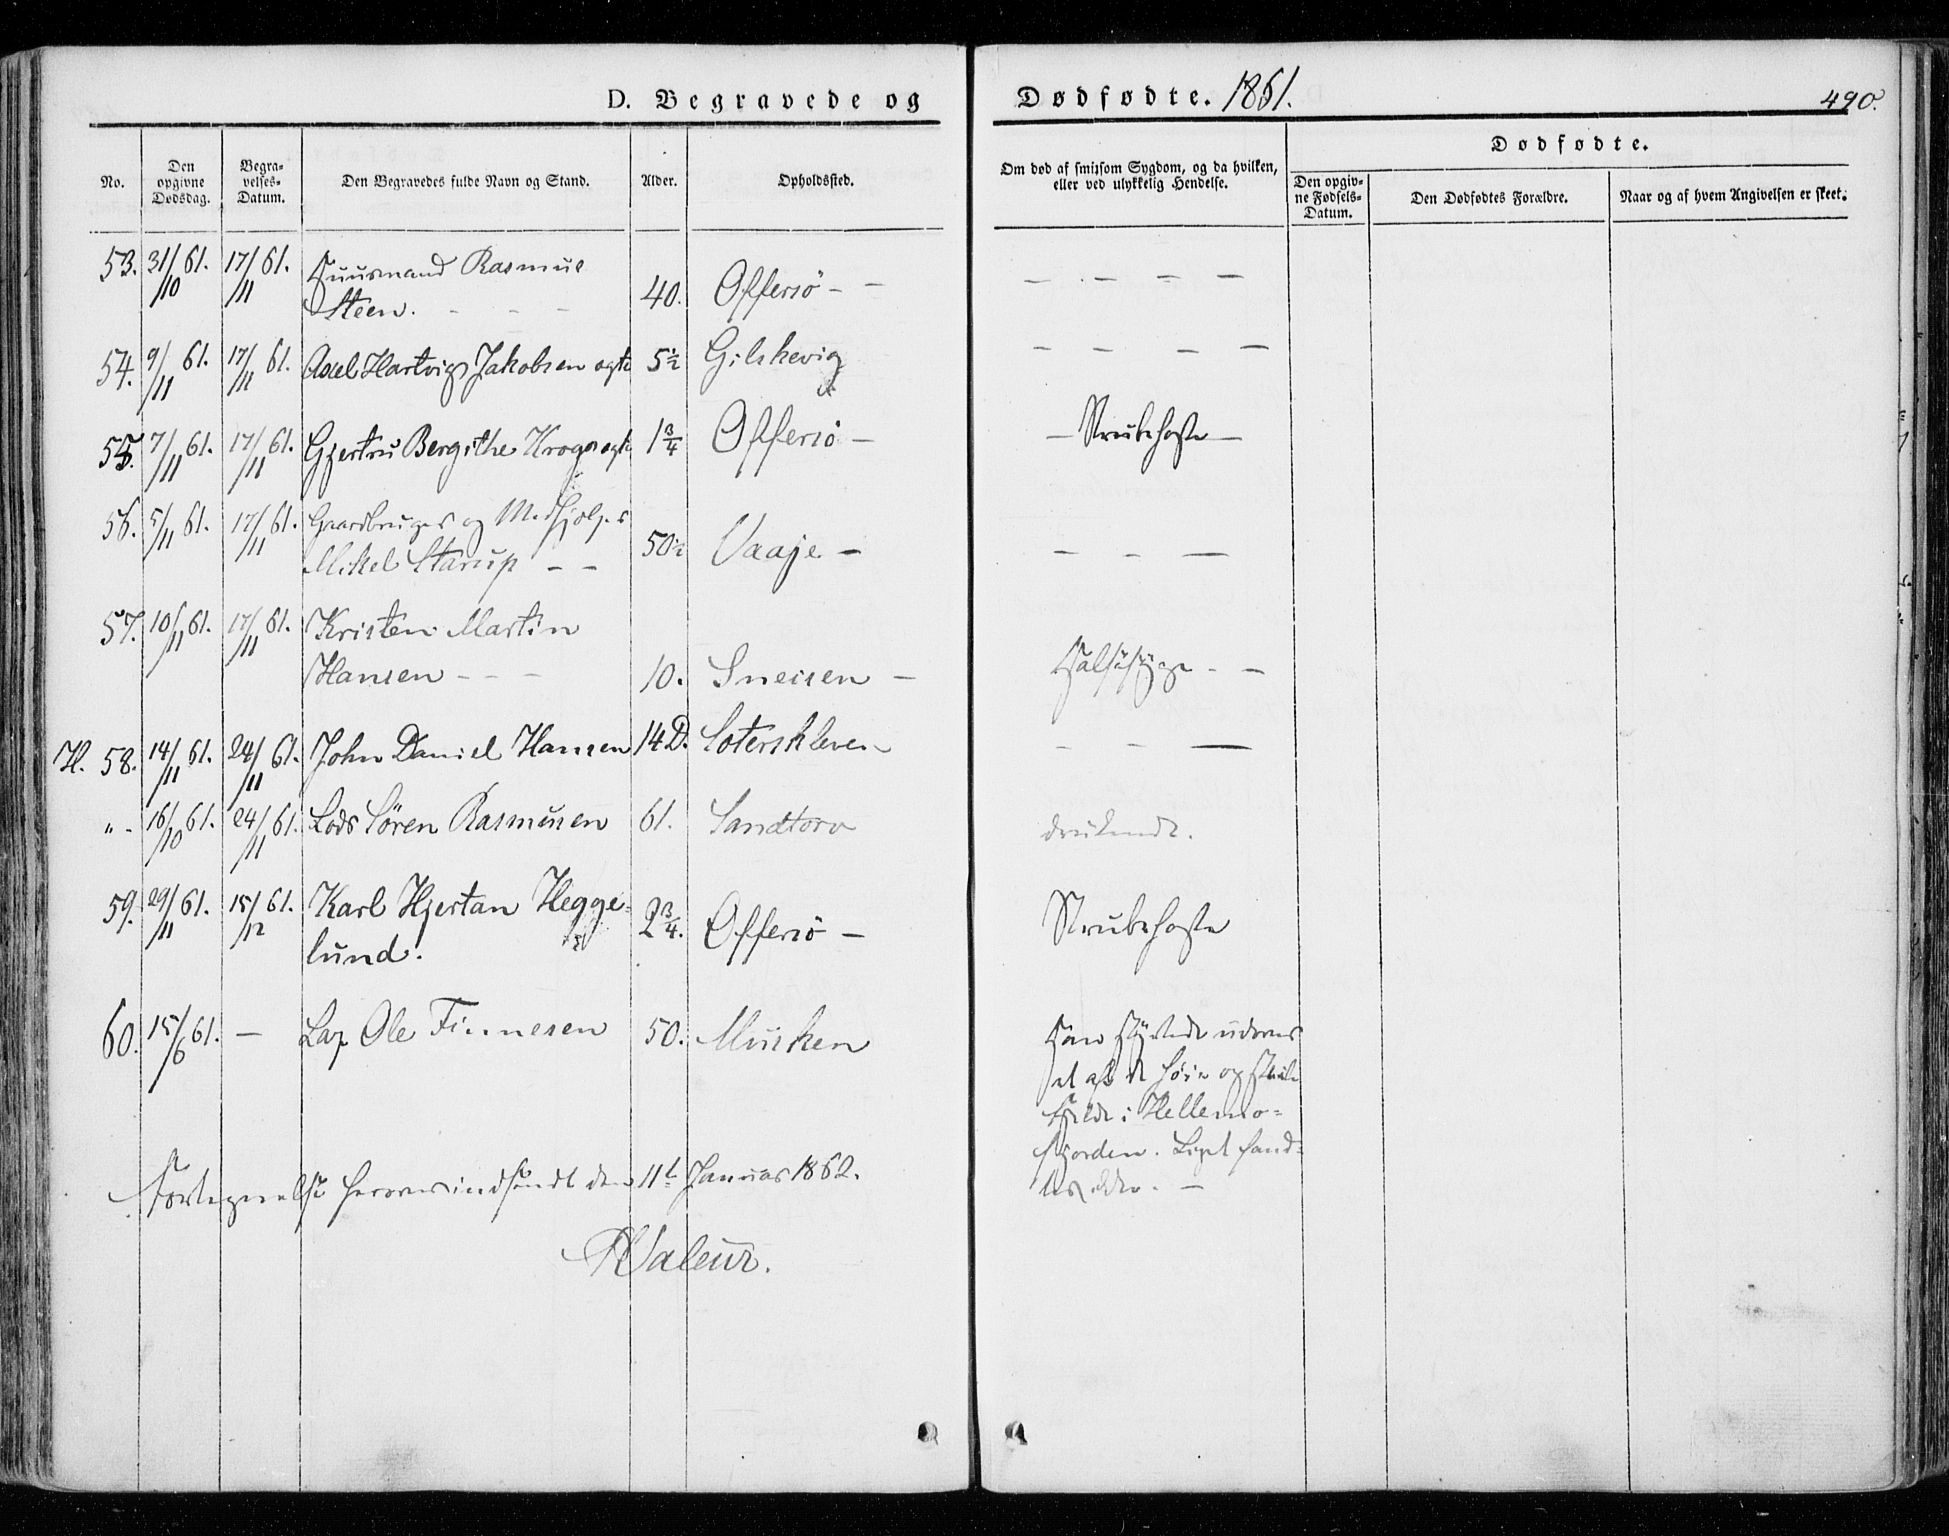 D. Begravede og Dødfødte. 1861. 490.
No.
Den opgivne Dødsdag.
Begravelses-Datum.
Den Begravedes fulde Navn og Stand.
Alder.
Opholdssted.
Om død af smitsom Sygdom, og da hvilken, eller ved ulykkelig Hendelse.
Dødfødte.
Den opgivne Fødsels-Datum.
Den Dødfødtes Forældre.
Naar og af hvem Angivelsen er skeet.
53. 31/10 61. 17/11 61. Huusmand Rasmus
Steen. - - - 40. Offersö - - - - - -
54. 9/11 61. 17/11 61. Axel Hartvig Jakobsen ægte 5½ Gilshevig - - - -
55. 7/11 61. 17/11 61. Gjertru Bergithe Krogs ægte 1¾ Offersö - - Strubehoste -
56. 5/11 61. 17/11 61. Gaardbruger og Medhjelper
Mikel Starup - - 50½ Vaaje - - - -
57. 10/11 61. 17/11 61. Kristen Martin
Hansen - - - 10. Sneisen - Halssyge - -
H. 58. 14/11 61. 24/11 61. John Daniel Hansen 14 D. Soterskleven - - -
" - 16/10 61. 24/11 61. Lods Sören Rasmusen 61. Sandtorv druknede.
59. 29/11 61. 15/12 61. Karl Hjertan Hegge-
lund. 2¾. Offersö - Strubehoste
60. 15/6 61. - Lap Ole Finnesen 50. Musken Han styrtede
af et höie og steile
Fjelde i Hellemo-
fjorden. Liget fand-
tes ikke. -
Fortegnelse herover indsendt den 11te Januar 1862.
Valeur.